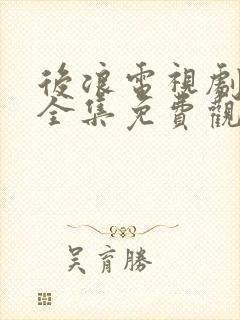 後浪電視劇
全集免費觀
吳育勝